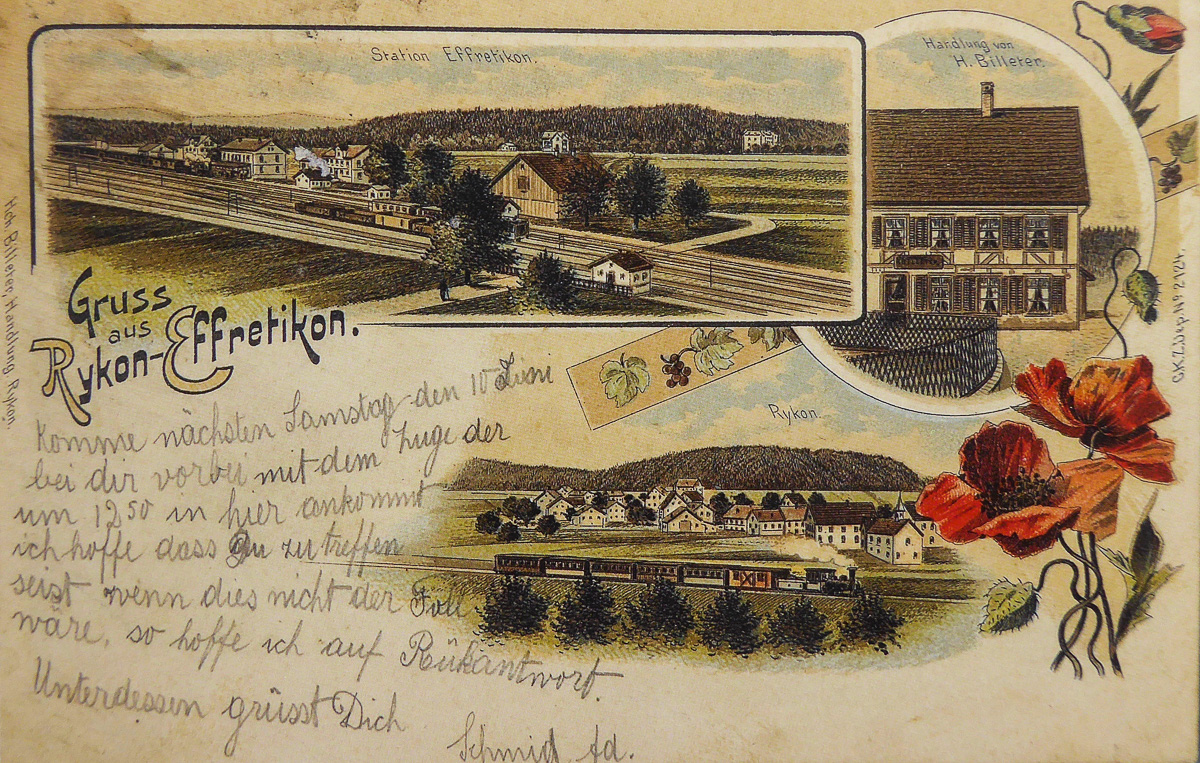 Station Effretikon.
Handlung von
H. Billeter.
Gruss
aus
Rykon-Effretikon.
Rykon.
Komme nächsten Samstag den 10 Juni
bei dir vorbei mit dem Zuge der
um 12 50 in hier ankommt
ich hoffe dass Du zu treffen
seist wenn dies nicht der Fall
wäre, so hoffe ich auf Rükantwort.
Unterdessen grüsst Dich
Schmid Ad.
Hch. Billeter, Handlung, Rykon.
C.K.Z. Dep. No. 2124.